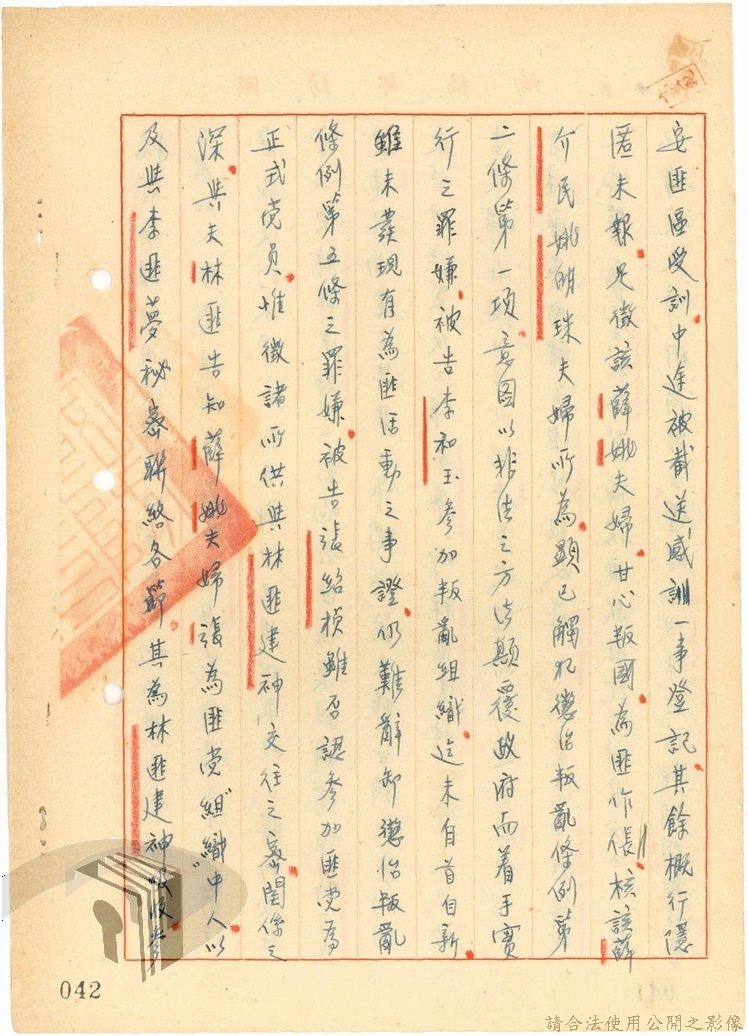 安匪區受訓中途被截送感訓一事登記其餘概行隱
匿未報足徵該薛姚夫婦甘心叛國為匪作倀核該薛
介民姚明珠夫婦所為顯已觸犯懲治叛亂條例第
二條第一項意圖以非法之方法顛覆政府而着手實
行之罪嫌被告李和玉參加叛亂組織迄未自首自新
雖未發現有為匪活動之事證仍難辭卸懲治叛亂
條例第五條之罪嫌被告張紹楨雖否認參加匪党為
正式党員惟徵諸所供與林匪建神交往之密関係之
深與夫林匪告知薛姚夫婦張為匪党"組織中人"以
及與李匪夢秘密聯絡各節其為林匪建神吸收
042
請合法使用公開之影像